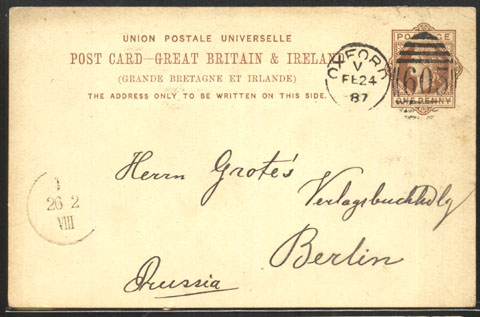 UNION POSTALE UNIVERSELLE
POST CARD—GREAT BRITAIN & IRELAND
(GRANDE BRETAGNE ET IRLANDE)
THE ADDRESS ONLY TO BE WRITTEN ON THIS SIDE.
OXFORD
V
FE 24
87
605
POSTAGE
ONE PENNY
Herrn Grote's
Verlagsbuchhdlg
Berlin
Prussia
1
26 2
VIII